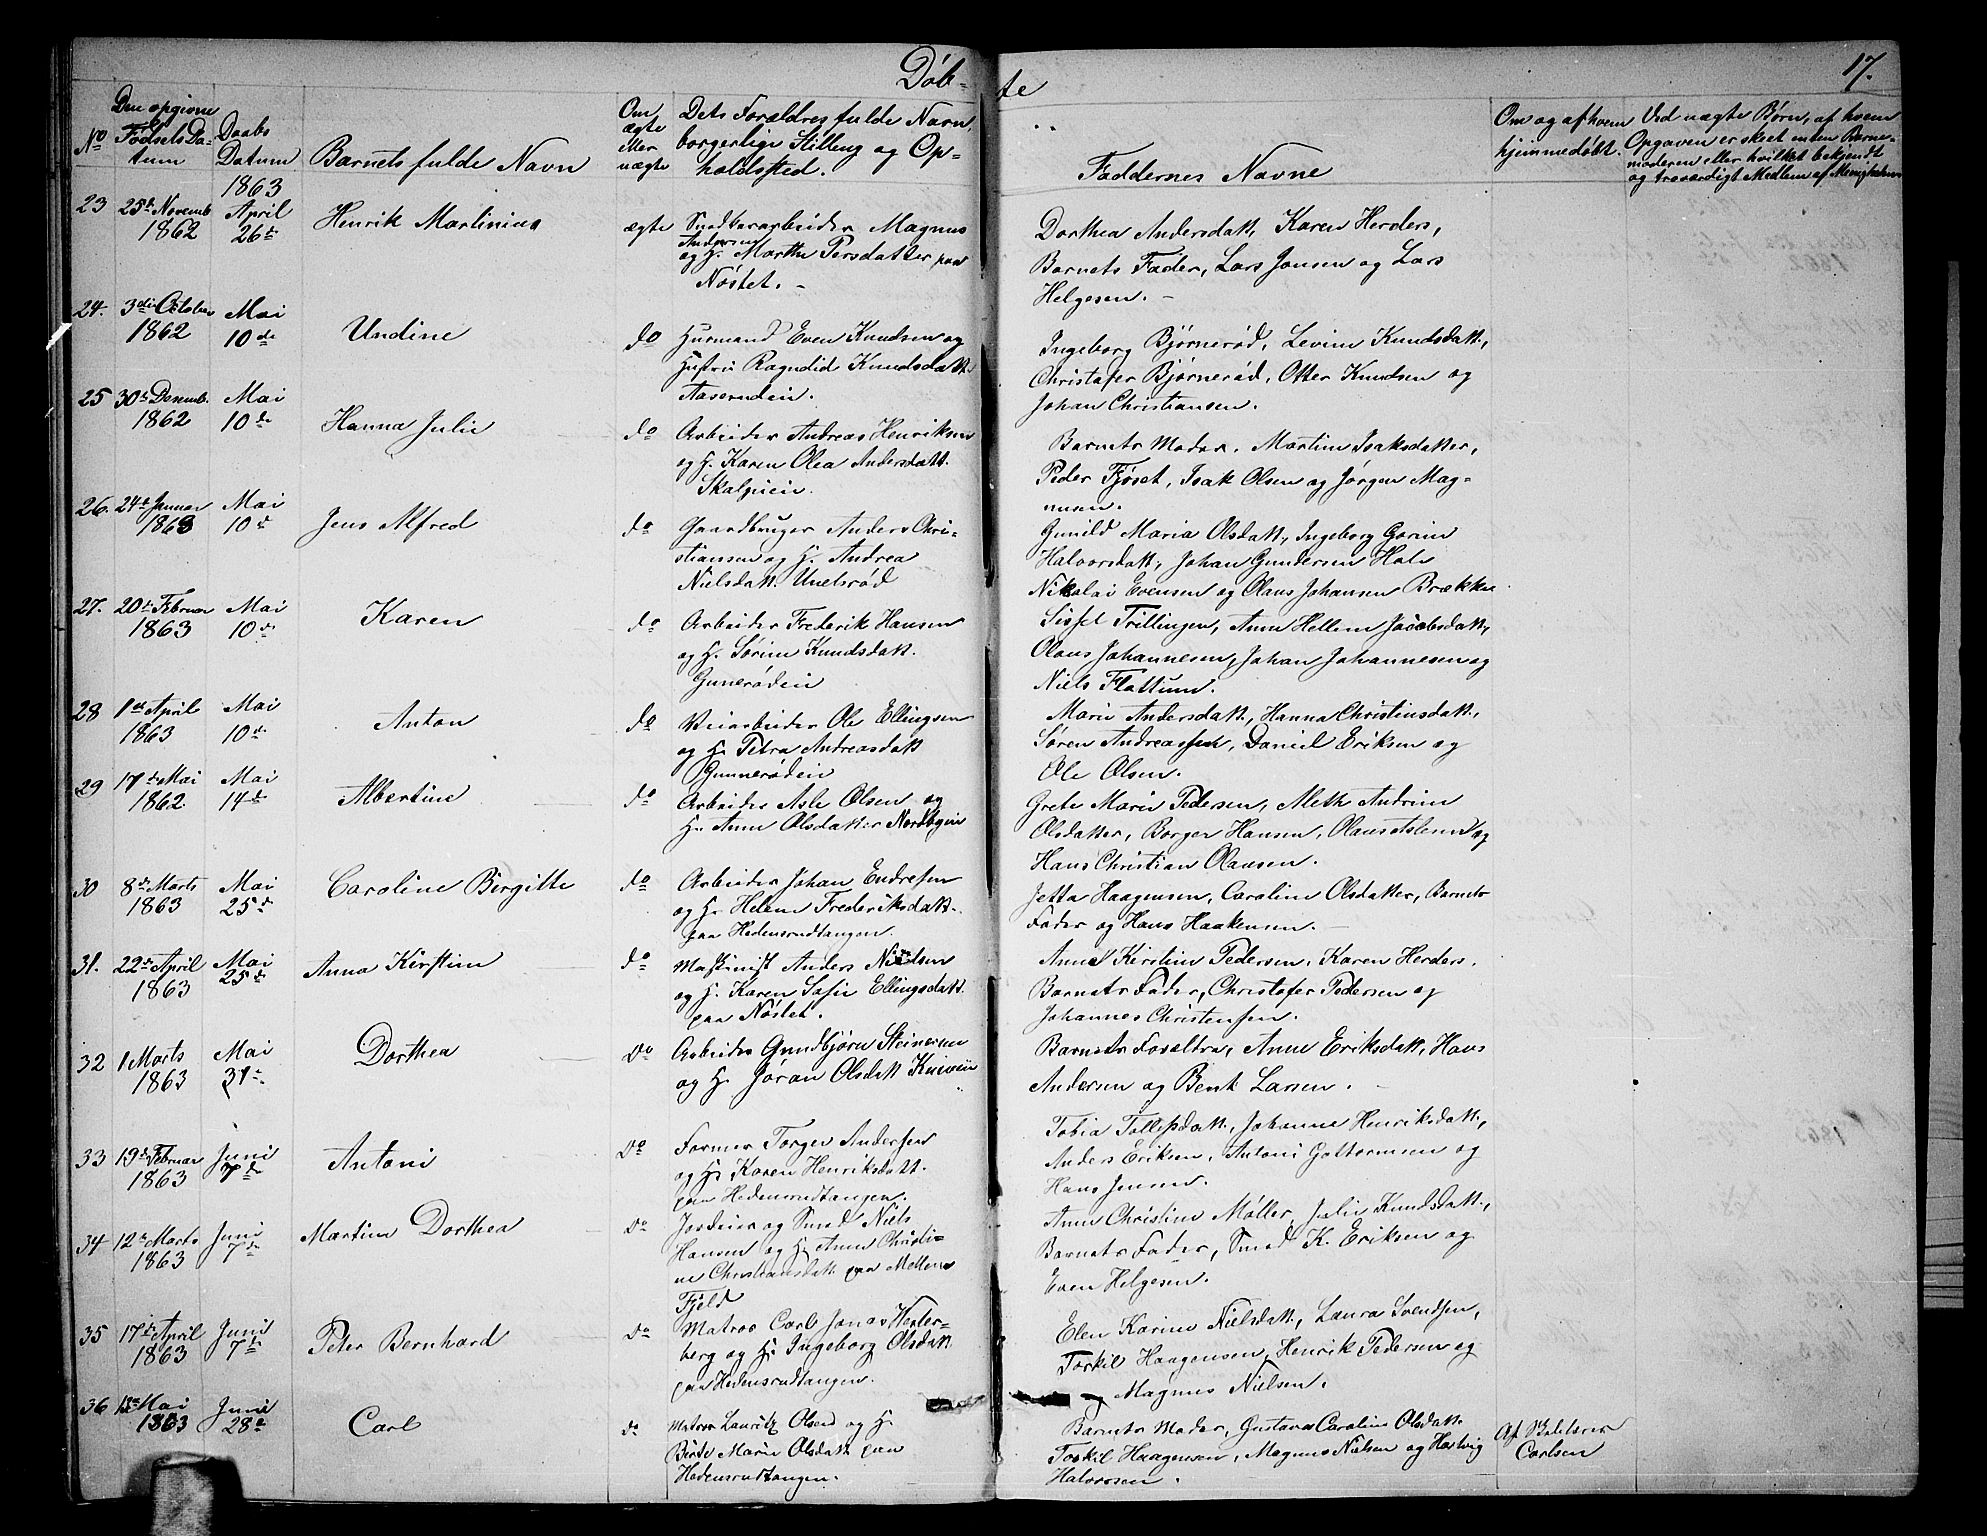 Døb-
te
17.
No
Den opgivne Fødsels Datum
Daabs Datum
Barnets fulde Navn
Om ægte eller uægte
Dets Forældres fulde Navn, borgerlige Stilling og Opholdssted.
Faddernes Navne
Om og af hvem hjemmedøbt.
Ved uægte Børn, af hvem Opgaven er skeet enten Barnemoderen eller hvilket bekjendt og troværdigt Medlem af Menigheden
1863
23 25de Novemb. April Henrik Martinius ægte Magnus Dorthea Andersdatt, Karen Herders,
1862 26de Andersen og H. Marthe Persdatter paa Barnets Fader, Lars Jonsen og Lars
Nøstet. - Helgesen. -
24. 3die October Mai Undine do Huusmand Even Knudsen og Ingeborg Bjørnerød, Levine Knudsdatt.,
1862 10de Hustru Ragndid Knudsdatt. Christofer Bjørnerød, Otter Knudsen og
Johan Christiansen.
25 30te Desemb. Mai Hanna Julie do Arbeider Andreas Henriksen Barnets Moder. Martine Isaksdatter,
1862 10de og H. Karen Olea Andersdatt. Peder Fjøset, Isak Olsen og Jørgen Mag-
nusen.
26. 24de Januar Mai Jens Alfred do Gaardbruger Anders Chri- Gunild Maria Olsdatt., Ingeborg Gorine
1863 10de stiansen og H. Andrea Halvorsdatt., Johan Gundersen Hals
Nielsdatt. Nikolai Evensen og Olaus Johansen Brække
27. 20de Februar Mai Karen do Arbeider Frederik Hansen Sissel Trillingen, Anne Hellene Jacobsdatt.,
1863 10de og H. Sørine Knudsdatt. Olaus Johannesen, Johan Johannesen og
Gunerødeie Niels Flattum.
28 1ste April Mai Anton do Veiarbeider Ole Ellingsen Marie Andersdatt., Hanna Christinsdatt.,
1863 10de og H. Petra Andreasdatt Søren Andreassen, Daniel Eriksen og
Gunnerødeie Ole Olsen.
29 17de Mai Mai Albertine do Arbeider Asle Olsen og Grete Marie Pedersen, Methe Andrine
1862. 14de H. Anne Olsdatter Olsdatter, Borger Hansen, og
Hans Christian Olausen.
30 8de Marts Mai Caroline Birgitte do Arbeider Johan Endresen Jetta Haagensen, Caroline Olsdatter, Barnets
1863 25de og H. Helene Frederiksdatt. Fader og Hans Haakensen. -
paa Hedensrudtangen.
31. 22de April Mai Anna Kirstine do Maskinist Anders Nielsen Anne Kirstine Pedersen, Karen Herders.
1863 25de og H. Karen Sofie Ellingsdatt. Barnets Fader, Christofer Pedersen og
paa Nøstet. Johannes Christensen.
32 1 Marts Mai Dorthea do Arbeider Gundbjørn Steinersen Barnets Forældre, Anne Eriksdatt., Hans
1863 31te og H. Jøran Olsdatt Andersen og Bent Larsen. -
33 19de Februar Juni Antoni do Former Torger Andersen Tobia Tollefsdatt., Johanne Henriksdatt.,
1863 7de og H. Karen Henriksdatt. Anders Eriksen, Antoni Gottormsen og
paa Hedensrudtangen. Hans Jensen.
34 12te Marts Juni Martine Dorthea do Jordeier og Smed Niels Anne Christine Møller, Julie Knudsdatt.,
1863 7de Hansen og H. Anne Christi- Barnets Fader, Smed K. Eriksen og
ne Christiansdatt. paa Mellem Even Helgesen.
Fjeld
35 17de April Juni Peter Bernhard do Matros Carl Jonas Wester- Elen Karine Nielsdatt., Laura Svendsen,
1863 7de berg og H. Ingeborg Olsdatt. Torkil Haagensen, Henrik Pedersen og
paa Hedensrudtangen. Magnus Nielsen.
36 13de Mai Juni Carl do Matros Lauritz Olsen og H. Barnets Moder, Gustava Caroline Olsdatt. Af
1863 28de Berte Marie Olsdatt. paa Torkil Haagensen, Magnus Nielsen og Hartvig Carlsen
Hedensrudtangen. Halvorsen.